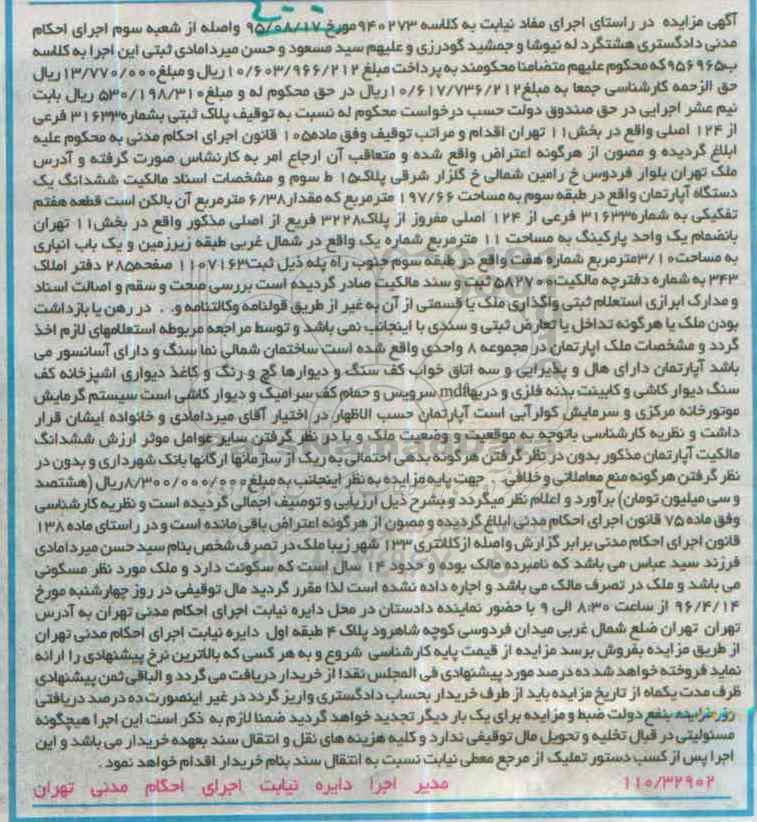 آگهی مزایده در راستای اجرای مفاد نیابت به کلاسه ۹۴۰۲۷۳ مورخ ۹۵/۰۸/۱۷ واصله از شعبه سوم اجرای احکام
مدنی دادگستری هشتگرد له نیوشا و جمشید گودرزی و علیهم سید مسعود و حسن میردامادی ثبتی این اجرا به کلاسه
ب۹۵۶۹۶۵ که محکوم علیهم متضامنا محکومند به پرداخت مبلغ ۱۰/۶۰۳/۹۶۶/۲۱۲ ریال و مبلغ ۱۳/۷۷۰/۰۰۰ ریال
حق الزحمه کارشناسی جمعا به مبلغ ۱۰/۶۱۷/۷۳۶/۲۱۲ ریال در حق محکوم له و مبلغ ۵۳۰/۱۹۸/۳۱۰ ریال بابت
نیم عشر اجرایی در حق صندوق دولت حسب درخواست محکوم له نسبت به توقیف پلاک ثبتی بشماره ۳۱۶۳۳ فرعی
از ۱۲۴ اصلی واقع در بخش ۱۱ تهران اقدام و مراتب توقیف وفق ماده ۱۰۵ قانون اجرای احکام مدنی به محکوم علیه
ابلاغ گردیده و مصون از هرگونه اعتراض واقع شده و متعاقب آن ارجاع امر به کارشناس صورت گرفته و آدرس
ملک تهران بلوار فردوس خ رامین شمالی خ گلزار شرقی پلاک ۱۵ ط سوم و مشخصات اسناد مالکیت ششدانگ یک
دستگاه آپارتمان واقع در طبقه سوم به مساحت ۱۹۷/۶۶ مترمربع که مقدار ۶/۳۸ مترمربع آن بالکن است قطعه هفتم
تفکیکی به شماره ۳۱۶۳۳ فرعی از ۱۲۴ اصلی مفروز از پلاک ۳۲۲۸ فریع از اصلی مذکور واقع در بخش ۱۱ تهران
بانضمام یک واحد پارکینگ به مساحت ۱۱ مترمربع شماره یک واقع در شمال غربی طبقه زیرزمین و یک باب انباری
به مساحت ۳/۱۰ مترمربع شماره هفت واقع در طبقه سوم جنوب راه پله ذیل ثبت ۱۱۰۷۱۶۳ صفحه ۲۸۵ دفتر املاک
۳۴۳ به شماره دفترچه مالکیت ۵۸۲۷۰۰ ثبت و سند مالکیت صادر گردیده است بررسی صحت و سقم و اصالت اسناد
و مدارک ابرازی استعلام ثبتی واگذاری ملک یا قسمتی از آن به غیر از طریق قولنامه وکالتنامه و. . در رهن یا بازداشت
بودن ملک یا هرگونه تداخل یا تعارض ثبتی و سندی با اینجانب نمی باشد و توسط مراجعه مربوطه استعلامهای لازم اخذ
گردد و مشخصات ملک اپارتمان در مجموعه ۸ واحدی واقع شده است ساختمان شمالی نما سنگ و دارای آسانسور می
باشد آپارتمان دارای هال و پذیرایی و سه اتاق خواب کف سنگ و دیوارها گچ و رنگ و کاغذ دیواری اشپزخانه کف
سنگ دیوار کاشی و کابینت بدنه فلزی و دربها mdf سرویس و حمام کف سرامیک و دیوار کاشی است سیستم گرمایش
موتورخانه مرکزی و سرمایش کولرآبی است آپارتمان حسب الاظهار در اختیار آقای میردامادی و خانواده ایشان قرار
داشت و نظریه کارشناسی باتوجه به موقعیت و وضعیت ملک و با در نظر گرفتن سایر عوامل موثر ارزش ششدانگ
مالکیت آپارتمان مذکور بدون در نظر گرفتن هرگونه بدهی احتمالی به ریک از سازمانها ارگانها بانک شهرداری و بدون در
نظر گرفتن هرگونه منع معاملاتی و خلافی. . جهت پایه مزایده به نظر اینجانب به مبلغ ۸/۳۰۰/۰۰۰/۰۰۰ ریال (هشتصد
و سی میلیون تومان) برآورد و اعلام نظر میگردد و بشرح ذیل ارزیابی و توصیف اجمالی گردیده است و نظریه کارشناسی
وفق ماده ۷۵ قانون اجرای احکام مدنی ابلاغ گردیده و مصون از هرگونه اعتراض باقی مانده است و در راستای ماده ۱۳۸
قانون اجرای احکام مدنی برابر گزارش واصله از کلانتری ۱۳۳ شهر زیبا ملک در تصرف شخص بنام سید حسن میردامادی
فرزند سید عباس می باشد که نامبرده مالک بوده و حدود ۱۴ سال است که سکونت دارد و ملک مورد نظر مسکونی
می باشد و ملک در تصرف مالک می باشد و اجاره داده نشده است لذا مقرر گردید مال توقیفی در روز چهارشنبه مورخ
۹۶/۴/۱۴ از ساعت ۸:۳۰ الی ۹ با حضور نماینده دادستان در محل دایره نیابت اجرای احکام مدنی تهران به آدرس
تهران تهران ضلع شمال غربی میدان فردوسی کوچه شاهرود پلاک ۴ طبقه اول دایره نیابت اجرای احکام مدنی تهران
از طریق مزایده بفروش برسد مزایده از قیمت پایه کارشناسی شروع و به هر کسی که بالاترین نرخ پیشنهادی را ارائه
نماید فروخته خواهد شد ده درصد مورد پیشنهادی فی المجلس نقدا از خریدار دریافت می گردد و الباقی ثمن پیشنهادی
ظرف مدت یکماه از تاریخ مزایده باید از طرف خریدار بحساب دادگستری واریز گردد در غیر اینصورت ده درصد دریافتی
روز مزایده بنفع دولت ضبط و مزایده برای یک بار دیگر تجدید خواهد گردید ضمنا لازم به ذکر است این اجرا هیچگونه
مسئولیتی در قبال تخلیه و تحویل مال توقیفی ندارد و کلیه هزینه های نقل و انتقال سند بعهده خریدار می باشد و این
اجرا پس از کسب دستور تملیک از مرجع معطی نیابت نسبت به انتقال سند بنام خریدار اقدام خواهد نمود.
۱۱۰/۳۲۹۰۲ مدیر اجرا دایره نیابت اجرای احکام مدنی تهران